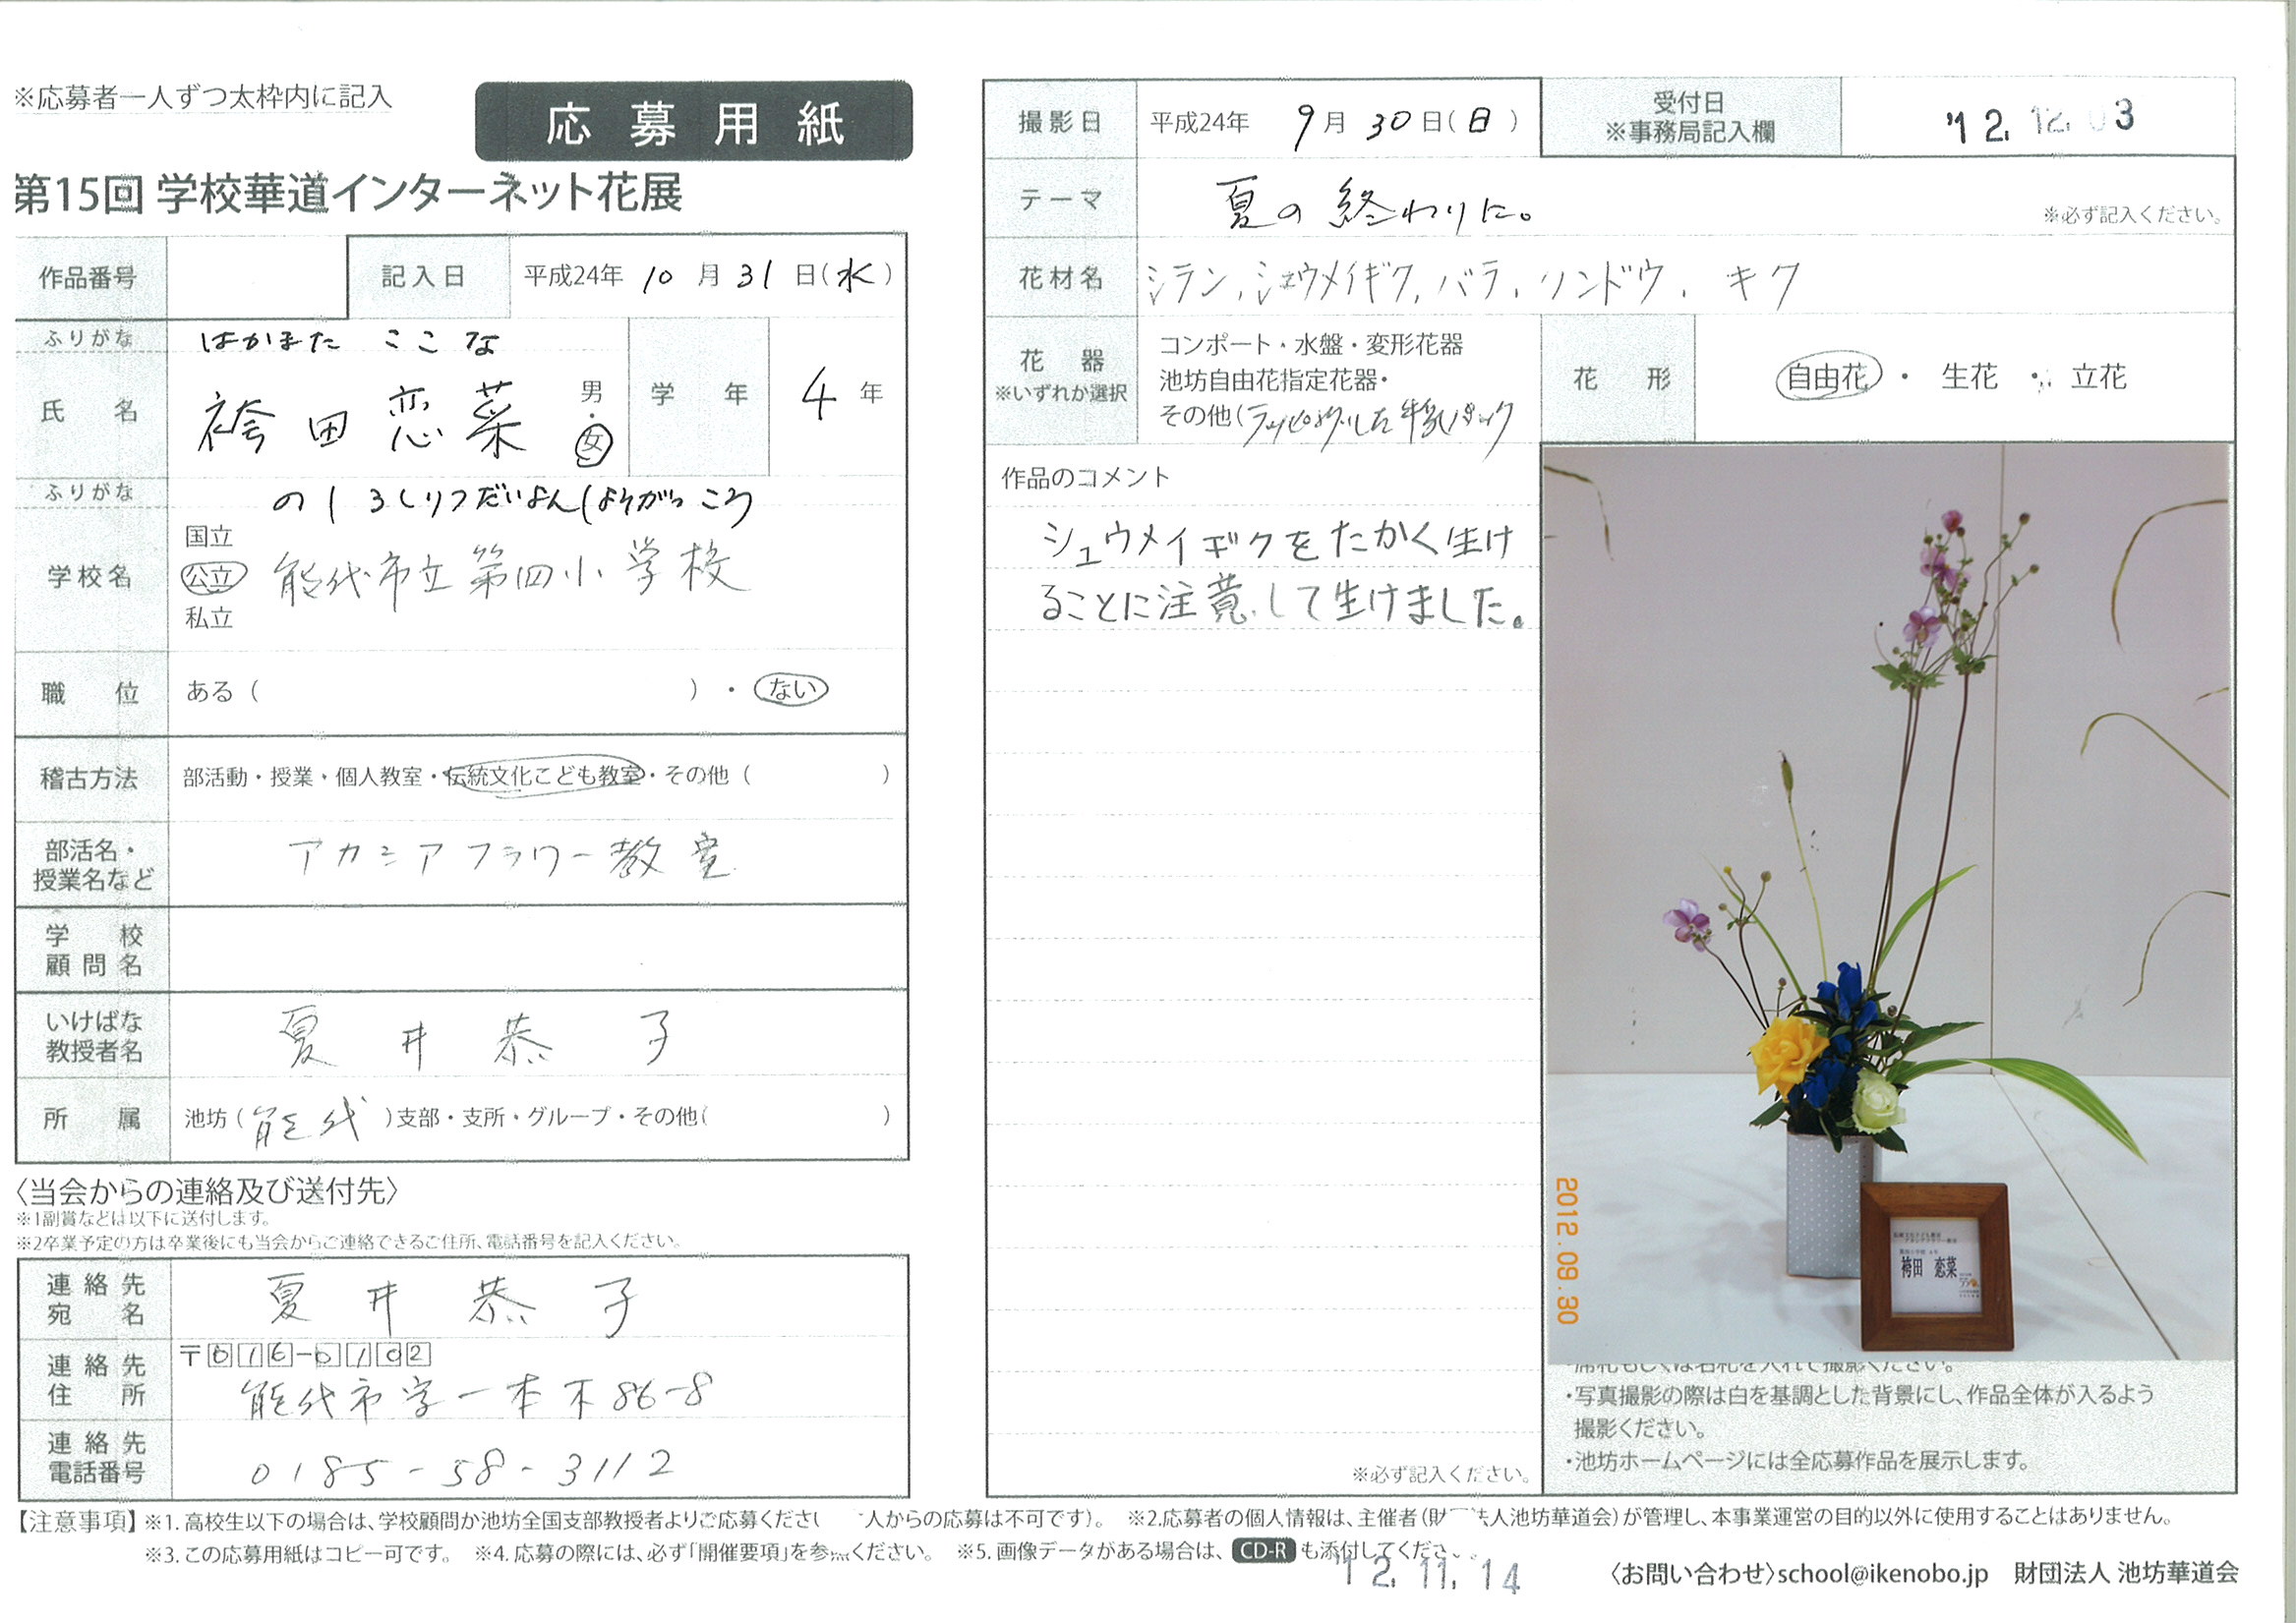 ※応募者一人ずつ太枠内に記入
応募用紙
第15回 学校華道インターネット花展
作品番号
記入日 平成24年 10月31日(水)
ふりがな はかまた ここな
氏名 袴田 恋菜 男・女
学年 4年
ふりがな のしろしりつだいよんしょうがっこう
学校名 国立 公立 私立 能代市立第四小学校
職位 ある( )・ない
稽古方法 部活動・授業・個人教室・伝統文化こども教室・その他( )
部活名・授業名など アカシアフラワー教室
学校顧問名
いけばな教授者名 夏井恭子
所属 池坊(能代)支部・支所・グループ・その他( )
〈当会からの連絡及び送付先〉
※1副賞などは以下に送付します。
※2卒業予定の方は卒業後にも当会からご連絡できるご住所、電話番号を記入ください。
連絡先宛名 夏井恭子
連絡先住所 〒016-0102
能代市字一本木86-8
連絡先電話番号 0185-58-3112
撮影日 平成24年 9月30日(日)
受付日 ※事務局記入欄 '12.12.03
テーマ 夏の終わりに。 ※必ず記入ください。
花材名 シラン、シュウメイギク、バラ、リンドウ、キク
花器 ※いずれか選択
コンポート・水盤・変形花器
池坊自由花指定花器・
その他(ラッピングした牛乳パック
花形 自由花・生花・立花
作品のコメント
シュウメイギクをたかく生け
ることに注意して生けました。
※必ず記入ください。
袴田 恋菜
2012.09.30
席札もしくは名札を入れて撮影ください。
・写真撮影の際は白を基調とした背景にし、作品全体が入るよう
撮影ください。
・池坊ホームページには全応募作品を展示します。
【注意事項】※1.高校生以下の場合は、学校顧問か池坊全国支部教授者よりご応募くださ 人からの応募は不可です)。 ※2.応募者の個人情報は、主催者(財 法人池坊華道会)が管理し、本事業運営の目的以外に使用することはありません。
※3.この応募用紙はコピー可です。 ※4.応募の際には、必ず「開催要項」を参照ください。 ※5.画像データがある場合は、CD-Rも添付してください。
'12.11.14
〈お問い合わせ〉school@ikenobo.jp 財団法人 池坊華道会